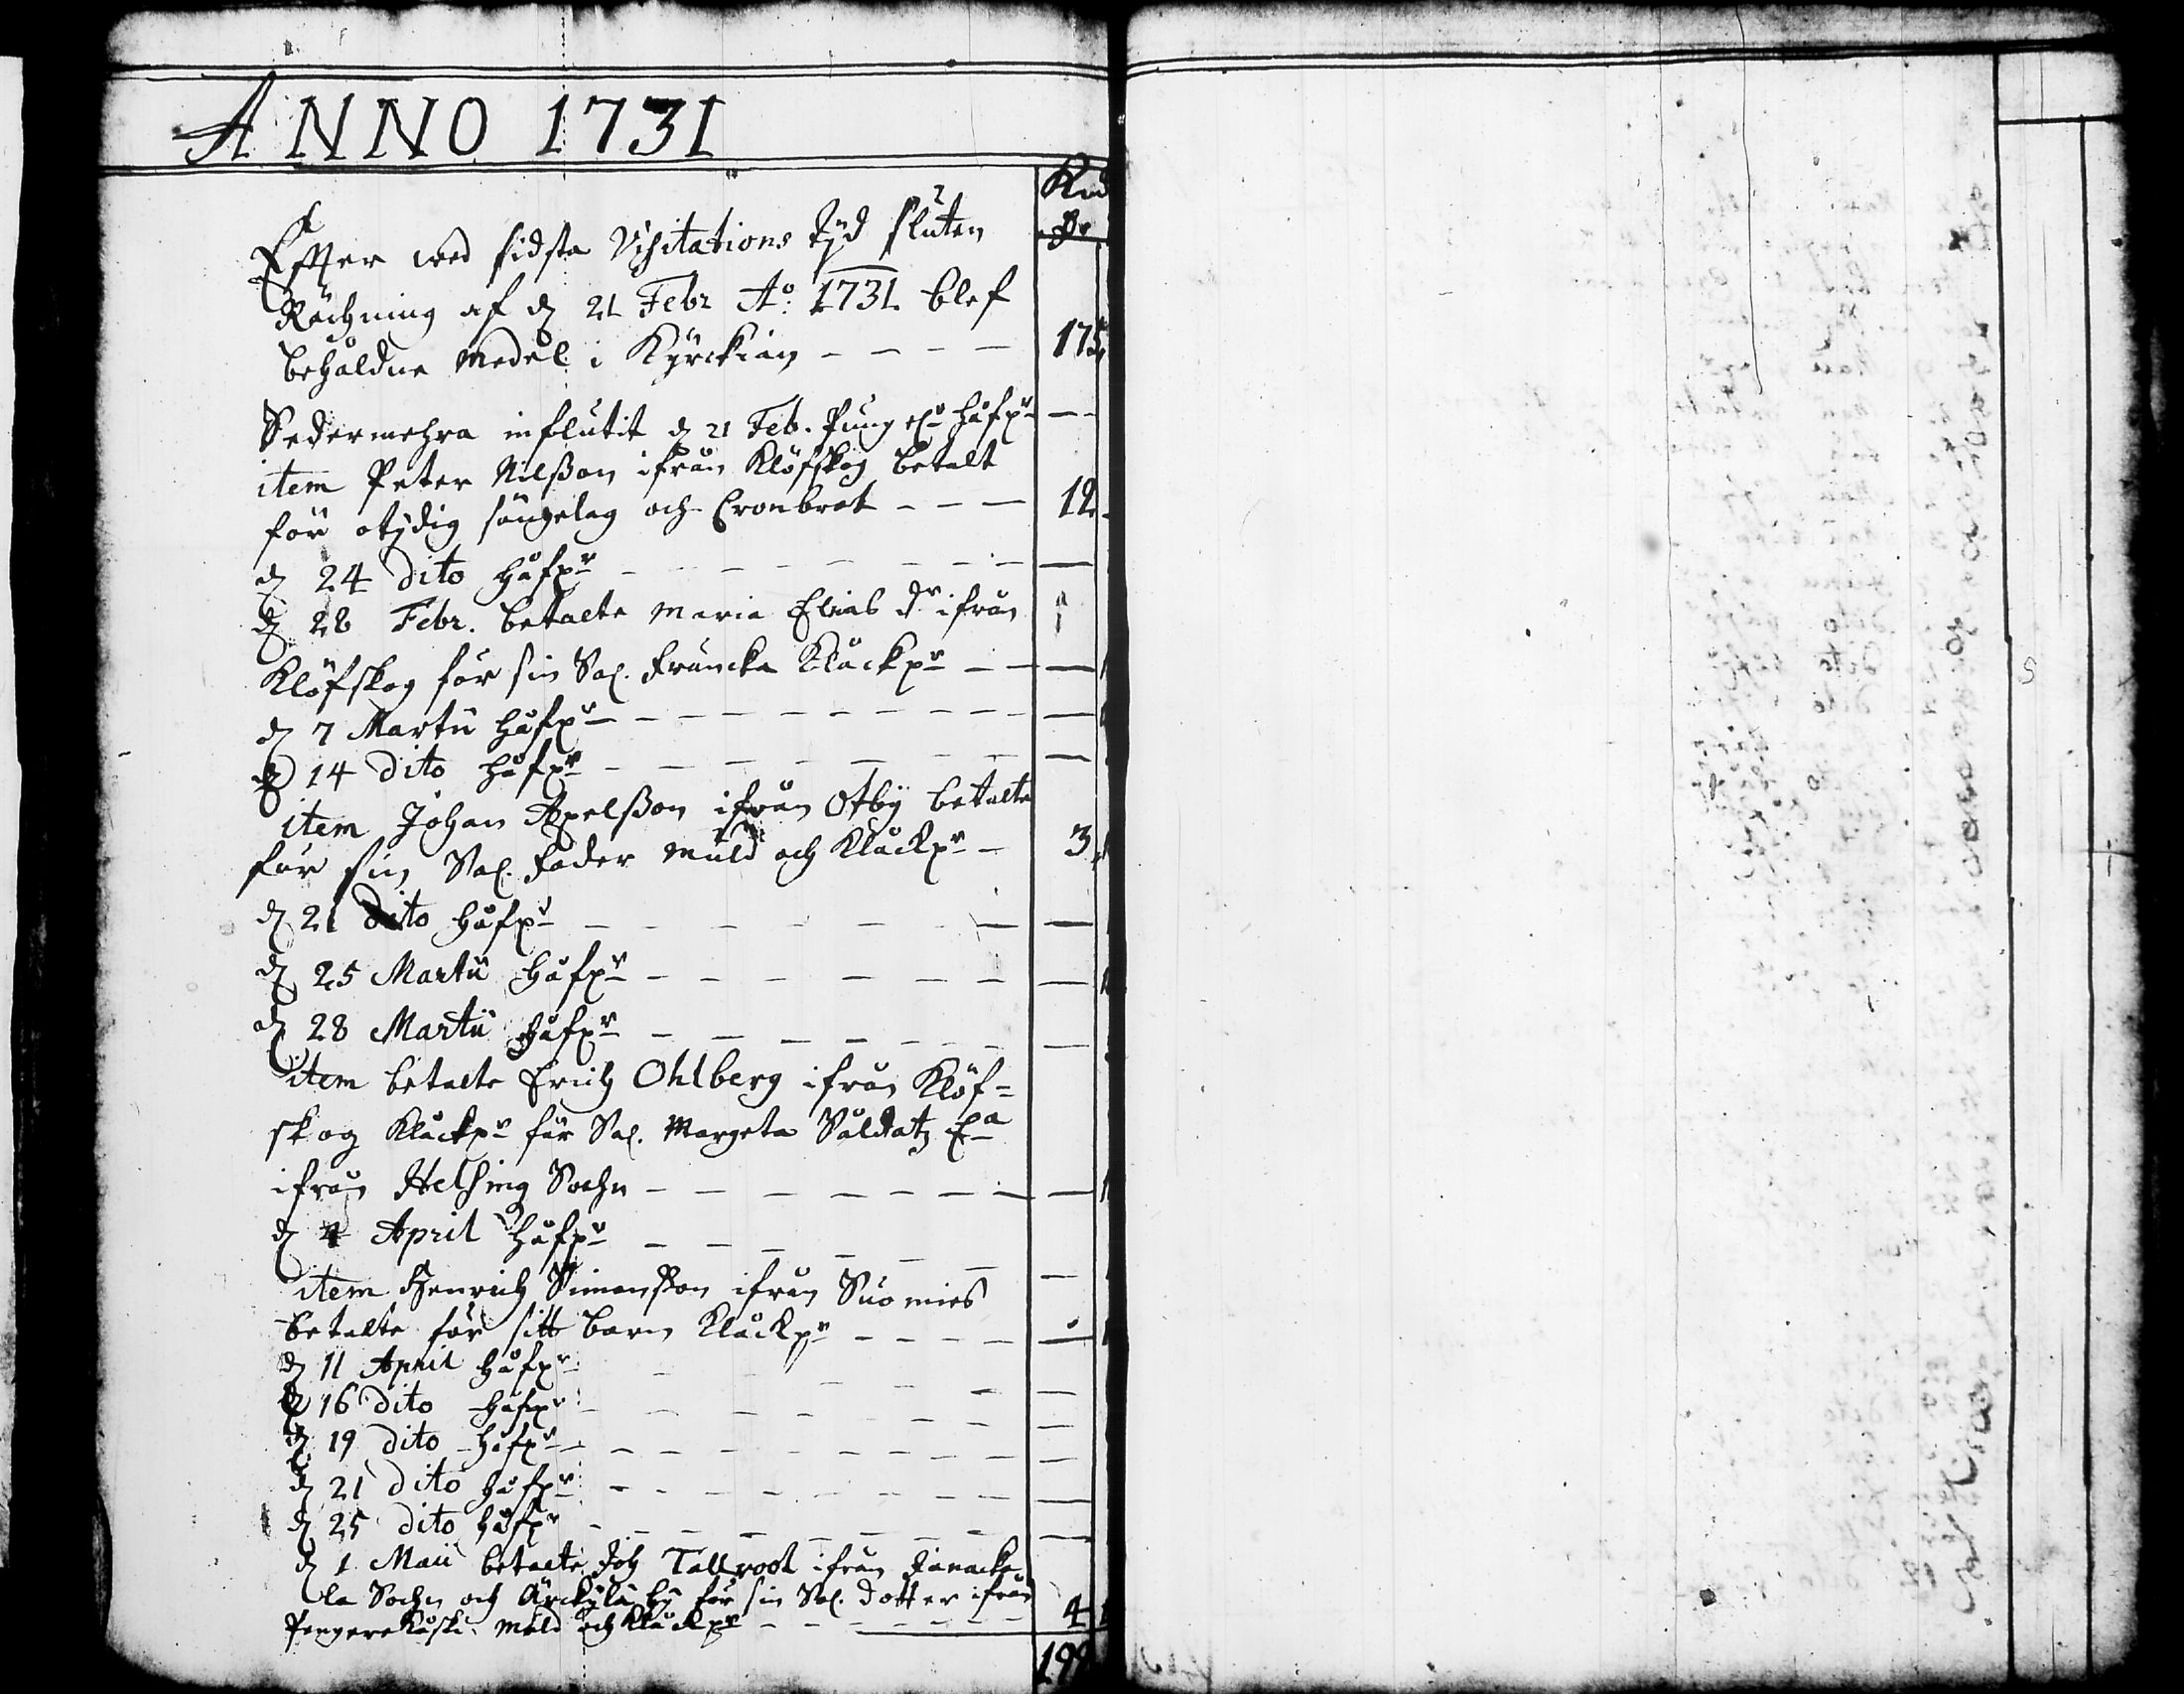 ANNO 1731
Efter wed sidsta Visitations Tijd sluten
Rächning af d 21 Febr Ao: 1731 blef
behåldne Medel i Kyrckian - - - - 175
Sedermehra influtit d 21 Feb. Pung och håfpr - -
item Peter Nilßon ifrån Klöfskog betalt
för otydig sängelag och Cronbrot - - - 12
d 24 dito håfpr - - - - - - - -
d 28 Febr. betalte Maria Elias dr ifrån
Klöfskog för sin Sal. Francka Klåckpr - - -
d 7 Martii håfpr - - - - - - - -
d 14 dito håfpr - - - - - - - -
item Johan Axelßon ifrån Otby betalte
för sin Sal. Fader Muld och Klåckpr - 3
d 21 dito håfpr - - - - - - - -
d 25 Martii håfpr - - - - - - -
d 28 Martii håfpr - - - - - - -
item betalte Erich Ohlberg ifrån Klöf=
skog Klåckpr för Sal. Margeta Såldatz
ifrån Helsing Sochn - - - - - - - -
d 4 April håfpr - - - - - - -
item Henrich Simonßon ifrån Suomies
betalte för sitt barn Klåckpr - - - - -
d 11 April håfpr - - - - - - -
d 16 dito håfpr - - - - - - - -
d 19 dito håfpr - - - - - - - -
d 21 dito håfpr - - - - - - - -
d 25 dito håfpr - - - - - - - -
d 1 Maii betalte Joh Tallroot ifrån Janacka
la Sochn och Årckylä by för sin Sal. dotter ifrån
Pengerekåski Muld och Klåckpr - - - - - - 4
199